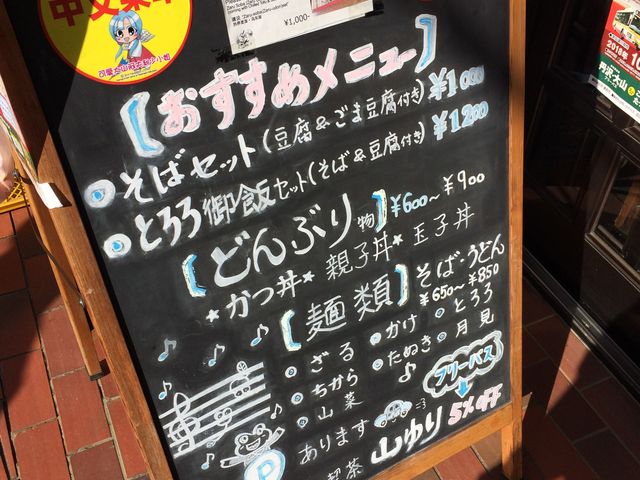 中文菜單
¥1,000-
【おすすめメニュー】
・そばセット(豆腐&ごま豆腐付き) ¥1000
・とろろ御飯セット(そば&豆腐付き) ¥1200
【どんぶり物】 ¥600~¥900
★かつ丼★親子丼★玉子丼
【麺類】そば・うどん
¥650~¥850
ざる かけ とろろ
ちから たぬき 月見
山菜
フリーパス
5%OFF
あります
山ゆり
P
喫茶
2018年10
丹沢・大山